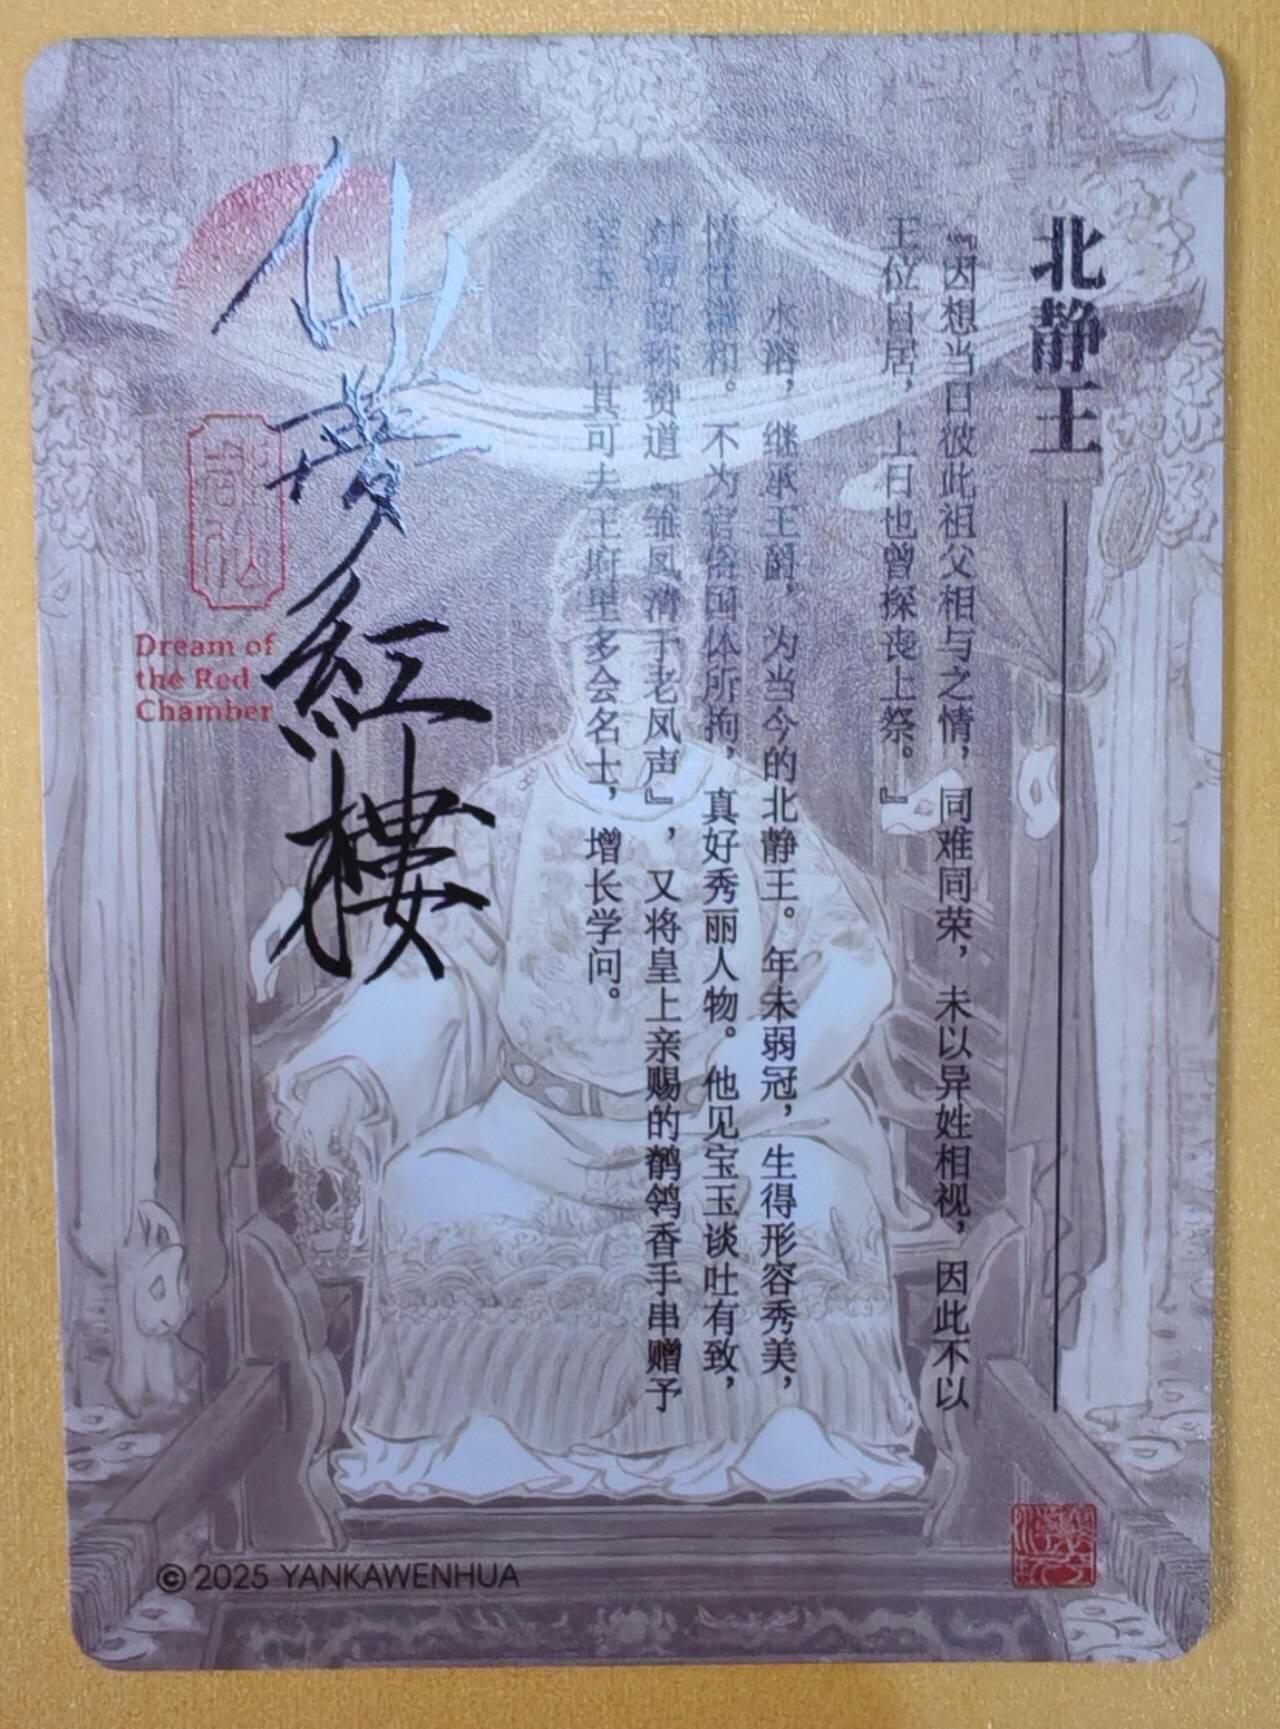 北静王
『因想当日彼此祖父相与之情，同难同荣，未以异姓相视，因此不以
王位自居，上日也曾探丧上祭。』
水溶，继承王爵，为当今的北静王。年未弱冠，生得形容秀美，
情性谦和。不为官俗国体所拘，真好秀丽人物。他见宝玉谈吐有致，
对贾政称赞道『雏凤清于老凤声』，又将皇上亲赐的鹡鸰香手串赠予
宝玉，让其可去王府里多会名士，增长学问。
仙梦红樓
Dream of
the Red
Chamber
© 2025 YANKAWENHUA